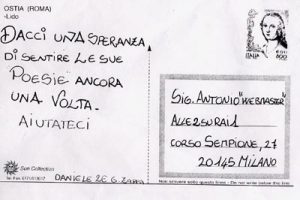 OSTIA (ROMA)
-Lido
DACCI UNA SPERANZA
DI SENTIRE LE SUE
POESIE ANCORA
UNA VOLTA-
AIUTATECI
DANIELE ZE G. ZAPPA
Sun Collection
ITALIA
800
SIG. ANTONIO "WEBMASTER"
ALLE 2 SU RAI 1
CORSO SEMPIONE, 27
20145 MILANO
Non scrivere sotto questa linea - Do not write below this line